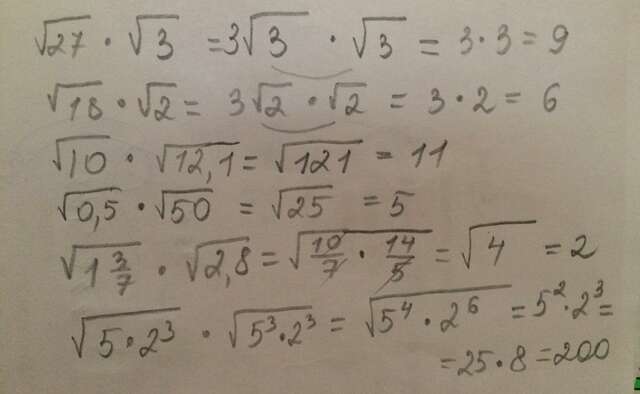 √27 · √3 = 3√3 · √3 = 3·3 = 9
√18 · √2 = 3√2 · √2 = 3 · 2 = 6
√10 · √12,1 = √121 = 11
√0,5 · √50 = √25 = 5
√1 3/7 · √2,8 = √10/7 · 14/5 = √4 = 2
√5·2³ · √5³·2³ = √5⁴·2⁶ = 5²·2³ =
= 25·8 = 200